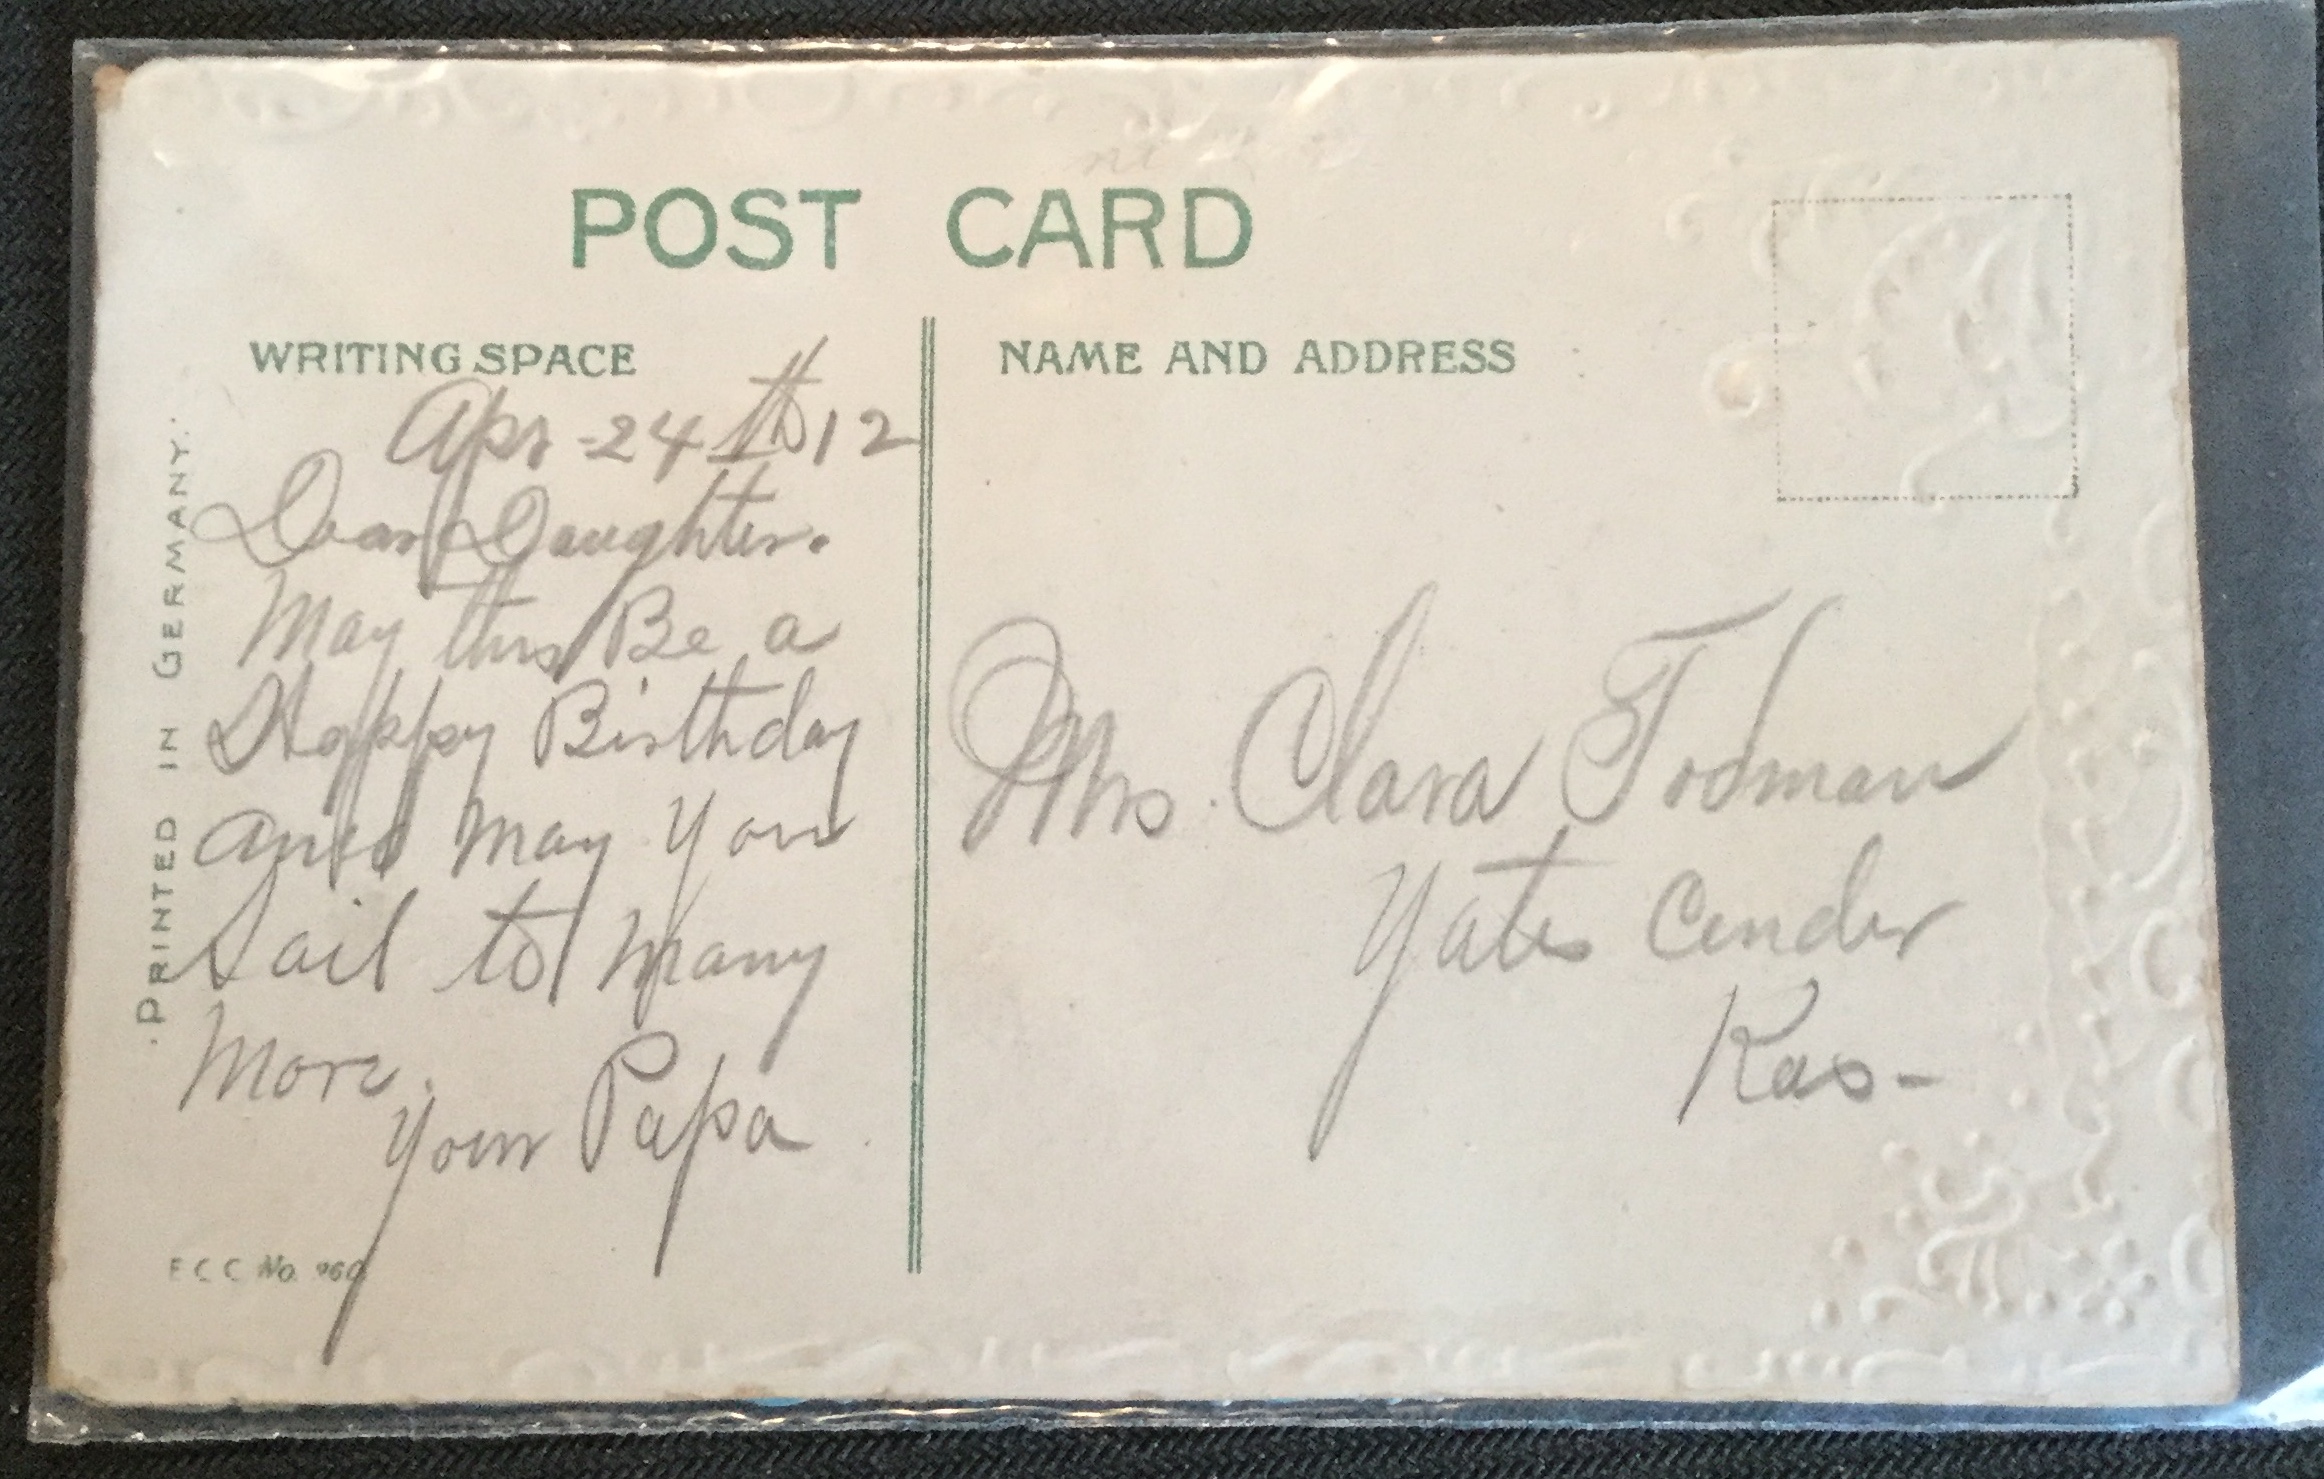 POST CARD
WRITING SPACE
Apr - 24th 12
Dear Daughter.
May this Be a
Happy Birthday
and may you
Sail to Many
More.
Your Papa
NAME AND ADDRESS
Mrs. Clara Todman
Yates Cender
Kas-
PRINTED IN GERMANY.
No. 960